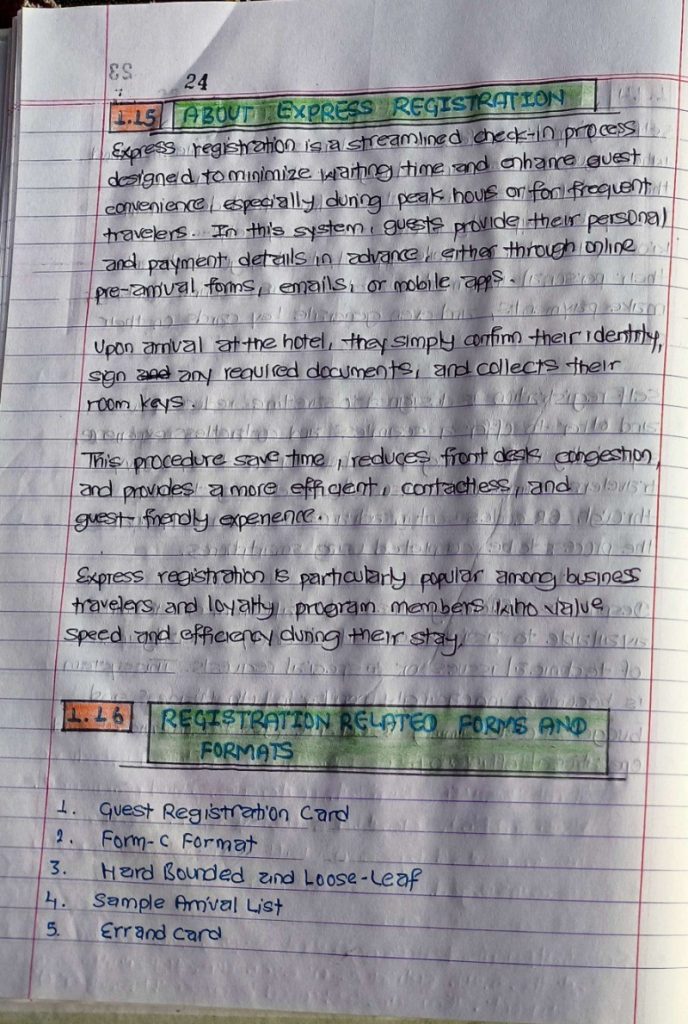 23
24
1.15 ABOUT EXPRESS REGISTRATION
Express registration is a streamlined check-in process
designed to minimize waiting time and enhance guest
convenience, especially during peak hours or for frequent
travelers. In this system, guests provide their personal
and payment details in advance, either through online
pre-arrival forms, emails, or mobile apps.
Upon arrival at the hotel, they simply confirm their identity,
sign and any required documents, and collects their
room keys.
This procedure save time, reduces front desk congestion,
and provides a more efficient, contactless, and
guest-friendly experience.
Express registration is particularly popular among business
travelers and loyalty program members who value
speed and efficiency during their stay.
1.16 REGISTRATION RELATED FORMS AND
FORMATS
1. Guest Registration Card
2. Form-C Format
3. Hard Bounded and Loose-Leaf
4. Sample Arrival List
5. Errand Card